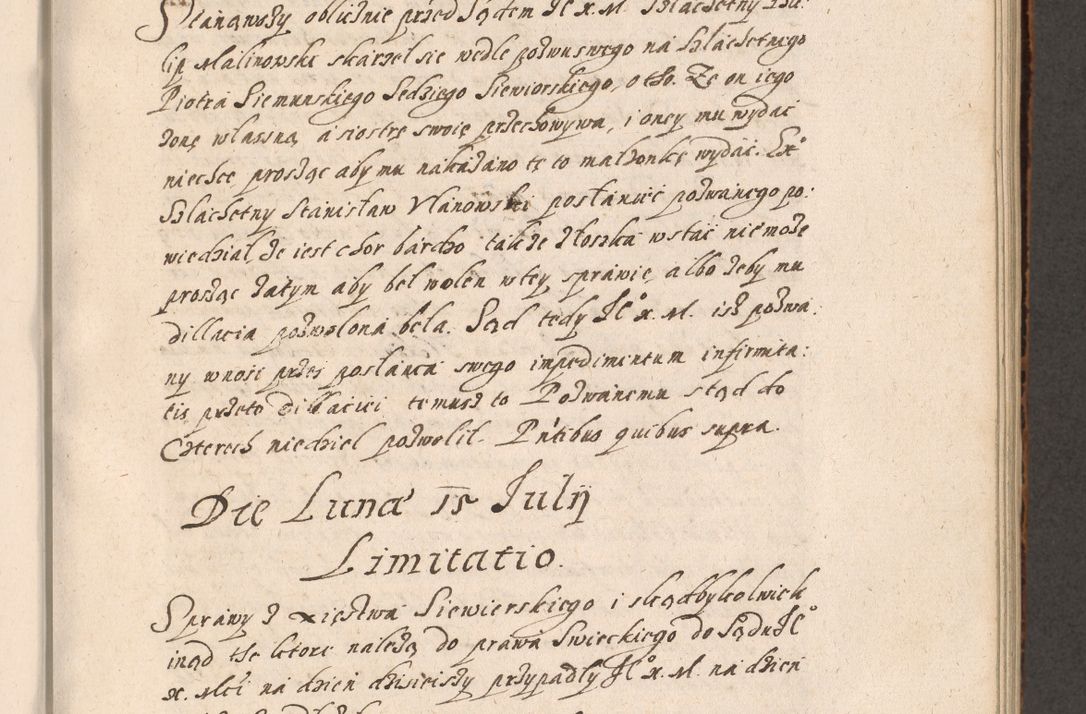 Stanąwszy oblicznie przed Sądem JE° X. M. Szlachetny Fa:
lip Malinowski skarzel sie wedle pozwuswego na Szlachetnego
Piotra Siemunskiego Sędziego Siewiorskiego, o tho. Ze on iego
zonę własną, a siostrę swoię przechowywa, i oney mu wydać
niechce, prosząc aby mu nakazano tę to małzonkę wydać. Ex°
Szlachetny Stanisław Vlanowski posłaniec pozwanego po:
wiedział, że iest chor bardzo także złoszka wstać niemoże
prosząc zatym aby bel wolen wtey sprawie, albo żeby mu
dillacia pozwolona bela. Sąd tedy JE° X. M. isz pozwa:
ny wnosi przes poslanca swego impedimentum infirmita:
tis przeto dillaciei temusz to Pozwanemu stąd do
Czterech niedziel pozwolil. Pntibus quibus supra.
Die Lunæ 15 Julij
Limitatio.
Sprawy z Xięstwa Siewierskiego i skądbykolwiek
inąd the ktore należą do prawa Swieckiego do Sądu JE°
X. Mci na dzien dzisieiszy przypadły JE° X. M. na dzien